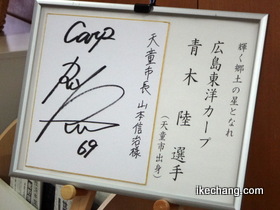 輝く郷土の星となれ
広島東洋カープ
青木陸選手
(天童市出身)
天童市長 山本信治様
Carp
69
ikechang.com